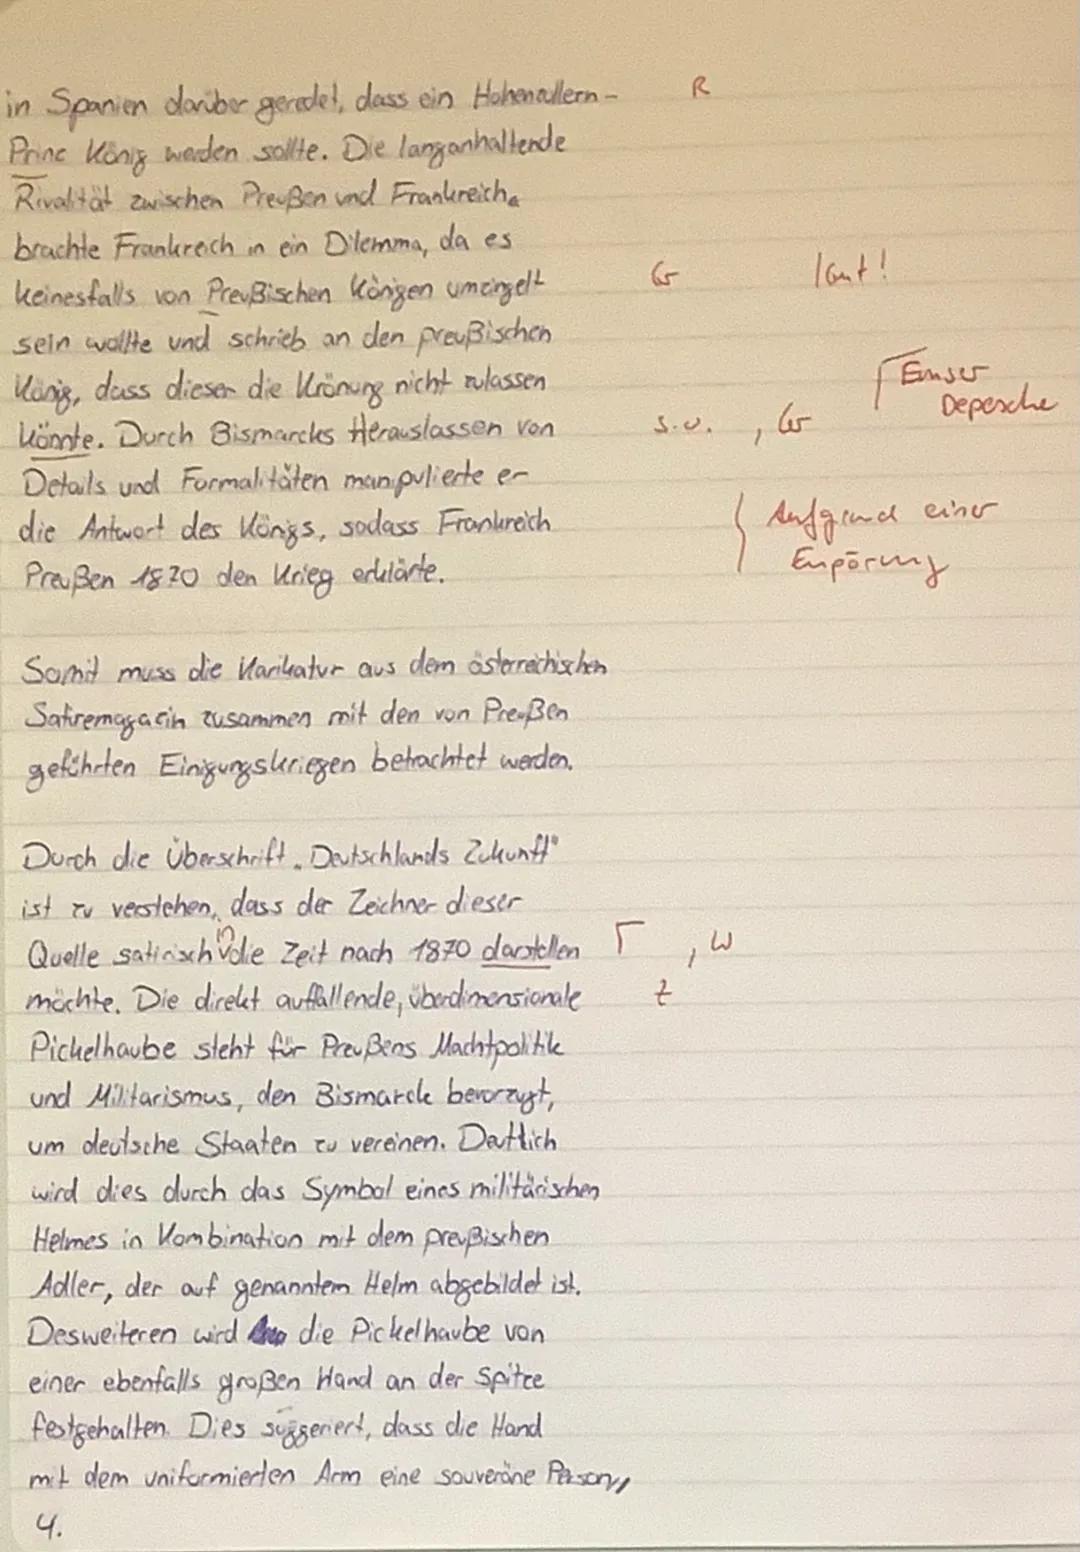 in Spanien darüber geredet, dass ein Hohenzollern- R
Prinz König werden sollte. Die langanhaltende
Rivalität zwischen Preußen und Frankreich
brachte Frankreich in ein Dilemma, da es
keinesfalls von Preußischen Königen umzingelt Gr
sein wollte und schrieb an den preußischen
König, dass dieser die Krönung nicht zulassen Emser
könnte. Durch Bismarcks Herauslassen von s.u. , Gr Depesche
Details und Formalitäten manipulierte er
die Antwort des Königs, sodass Frankreich Aufgrund einer
Preußen 1870 den Krieg erklärte. Empörung
Somit muss die Karikatur aus dem österreichischen
Satiremagazin zusammen mit den von Preußen
geführten Einigungskriegen betrachtet werden.
Durch die Überschrift „Deutschlands Zukunft"
ist zu verstehen, dass der Zeichner dieser
Quelle satirisch in die Zeit nach 1870 darstellen Γ , W
möchte. Die direkt auffallende, überdimensionale Z
Pickelhaube steht für Preußens Machtpolitik
und Militarismus, den Bismarck bevorzugt,
um deutsche Staaten zu vereinen. Deutlich
wird dies durch das Symbol eines militärischen
Helmes in Kombination mit dem preußischen
Adler, der auf genanntem Helm abgebildet ist.
Desweiteren wird die Pickelhaube von
einer ebenfalls großen Hand an der Spitze
festgehalten. Dies suggeriert, dass die Hand
mit dem uniformierten Arm eine souveräne Person,
4.